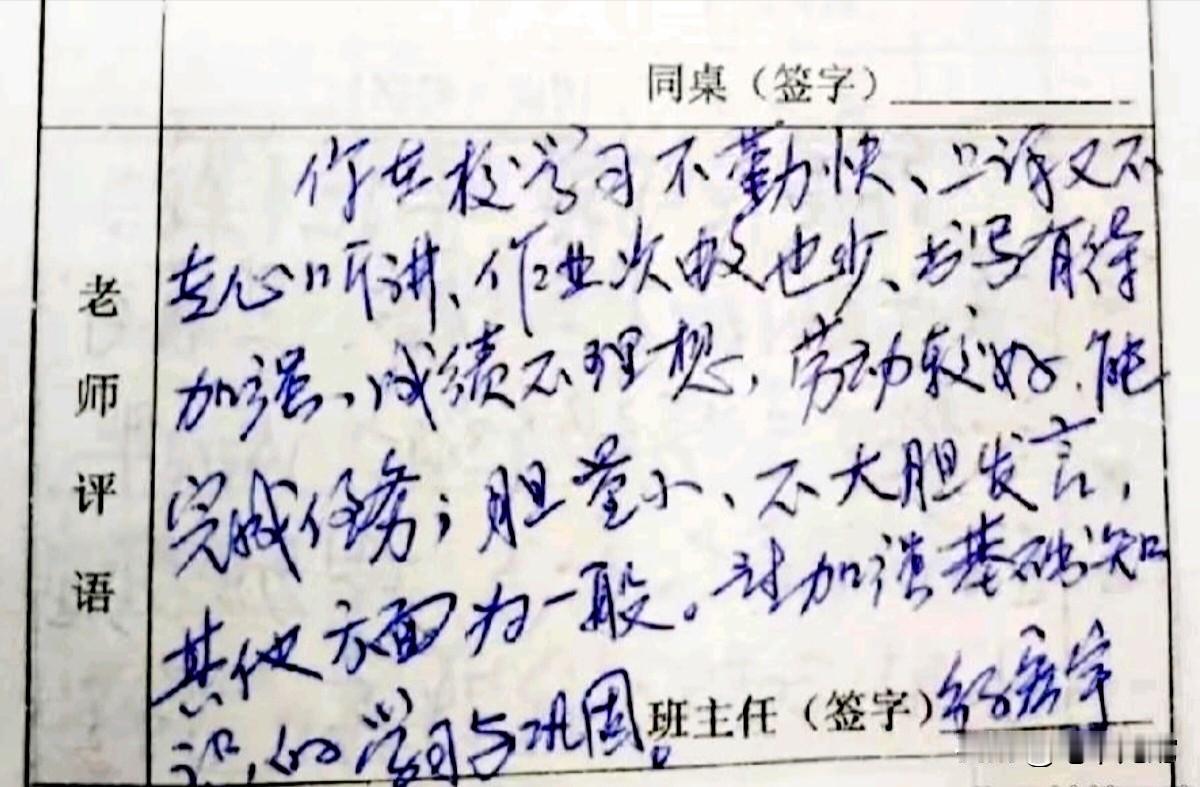 同桌（签字）
你在校学习不勤快、上课又不
专心听讲、作业次数也少、书写有待
加强、成绩不理想，劳动较好，能
完成任务；胆量小、不大胆发言，
其他方面为一般。请加强基础知
识的学习与巩固。
班主任（签字）
老师评语